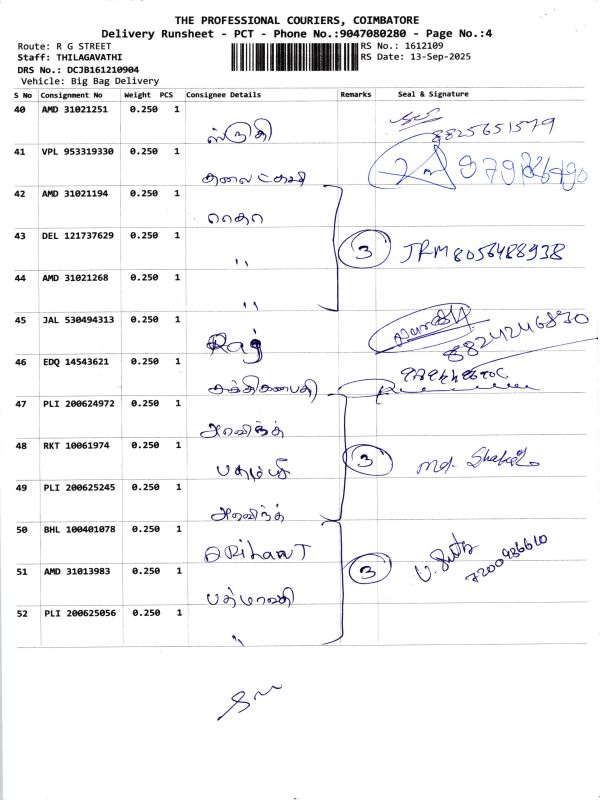 THE PROFESSIONAL COURIERS, COIMBATORE
Delivery Runsheet - PCT - Phone No.:9047080280 - Page No.:4
Route: R G STREET RS No.: 1612109
Staff: THILAGAVATHI RS Date: 13-Sep-2025
DRS No.: DCJB161210904
Vehicle: Big Bag Delivery
S No Consignment No Weight PCS Consignee Details Remarks Seal & Signature
40 AMD 31021251 0.250 1 ஸ்ருதி 8825651579
41 VPL 953319330 0.250 1
42 AMD 31021194 0.250 1 ராதா
43 DEL 121737629 0.250 1 " 3 JRM 8056488938
44 AMD 31021268 0.250 1 "
45 JAL 530494313 0.250 1 Raj 8824246830
46 EDQ 14543621 0.250 1
47 PLI 200624972 0.250 1 அரவிந்த்
48 RKT 10061974 0.250 1 3 Md.
49 PLI 200625245 0.250 1 அரவிந்த்
50 BHL 100401078 0.250 1 ARihanT
51 AMD 31013983 0.250 1 பத்மாவதி 3 7200936610
52 PLI 200625056 0.250 1 "